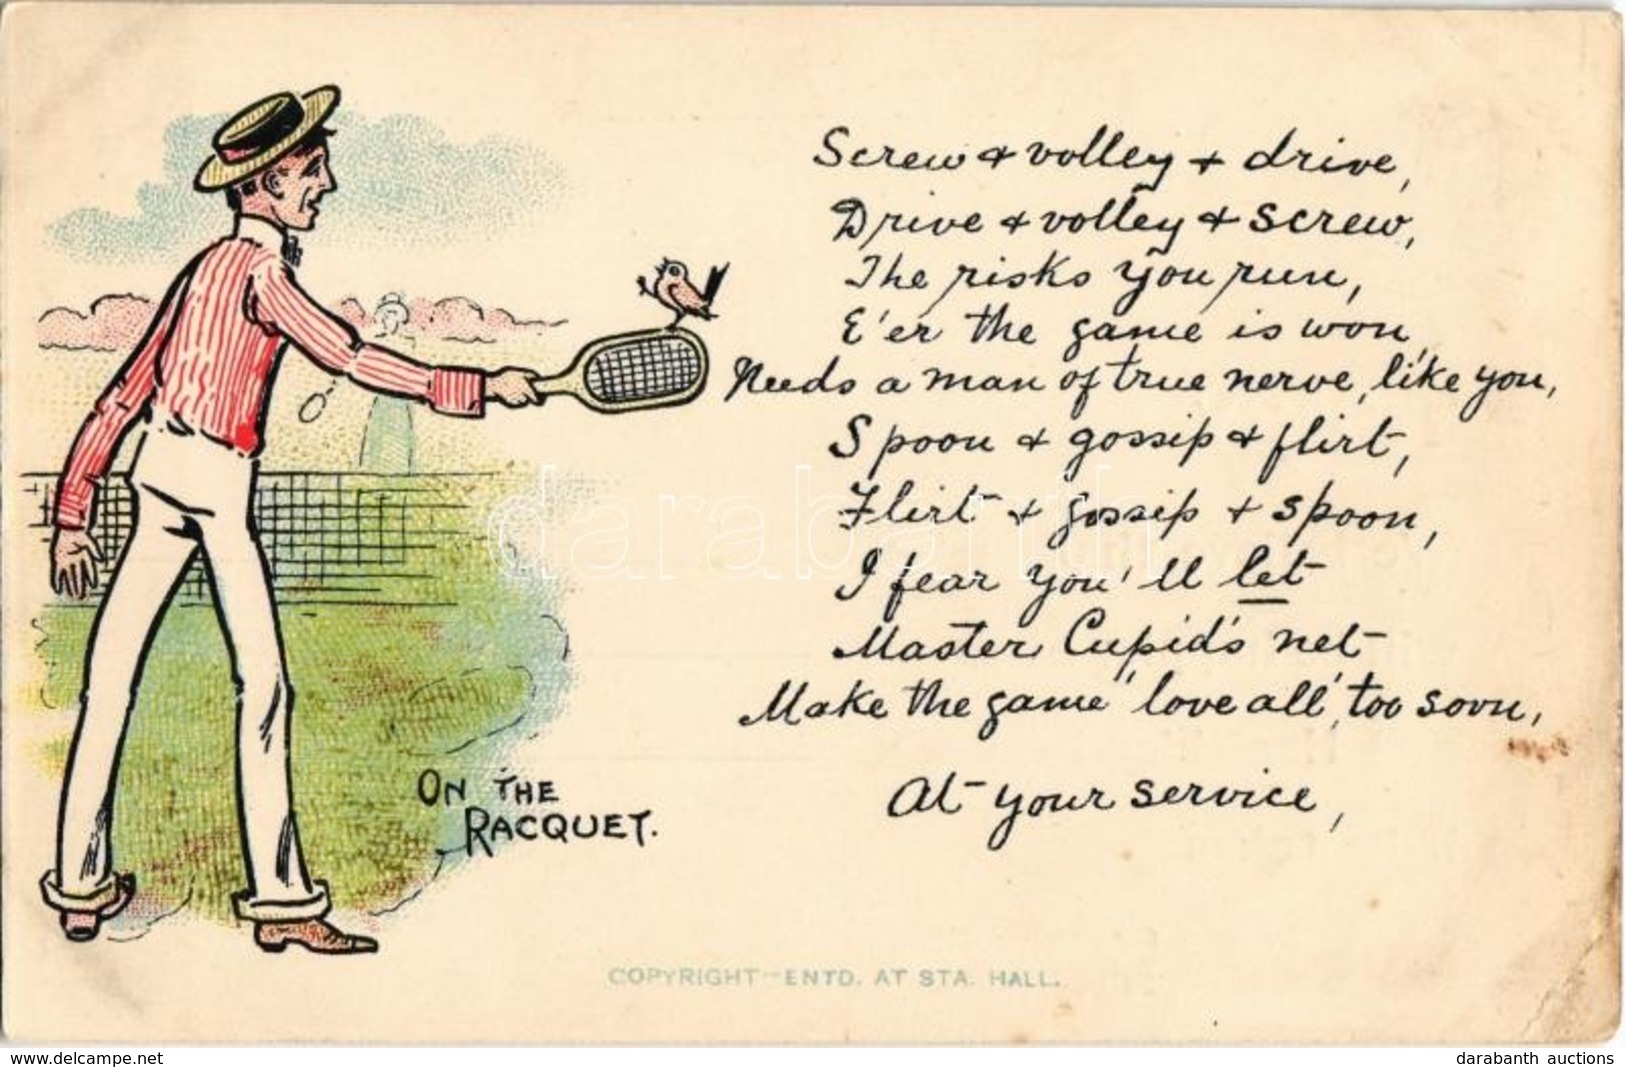 Screw & volley & drive,
Drive & volley & screw,
The risks you run,
E'er the game is won,
Needs a man of true nerve, like you,
Spoon & gossip & flirt,
Flirt & gossip & spoon,
I fear you'll let
Master Cupid's net
Make the game "love all", too soon,
At your service,
ON THE
RACQUET.
COPYRIGHT—ENTD. AT STA. HALL.
darabanth
www.delcampe.net
darabanth auctions